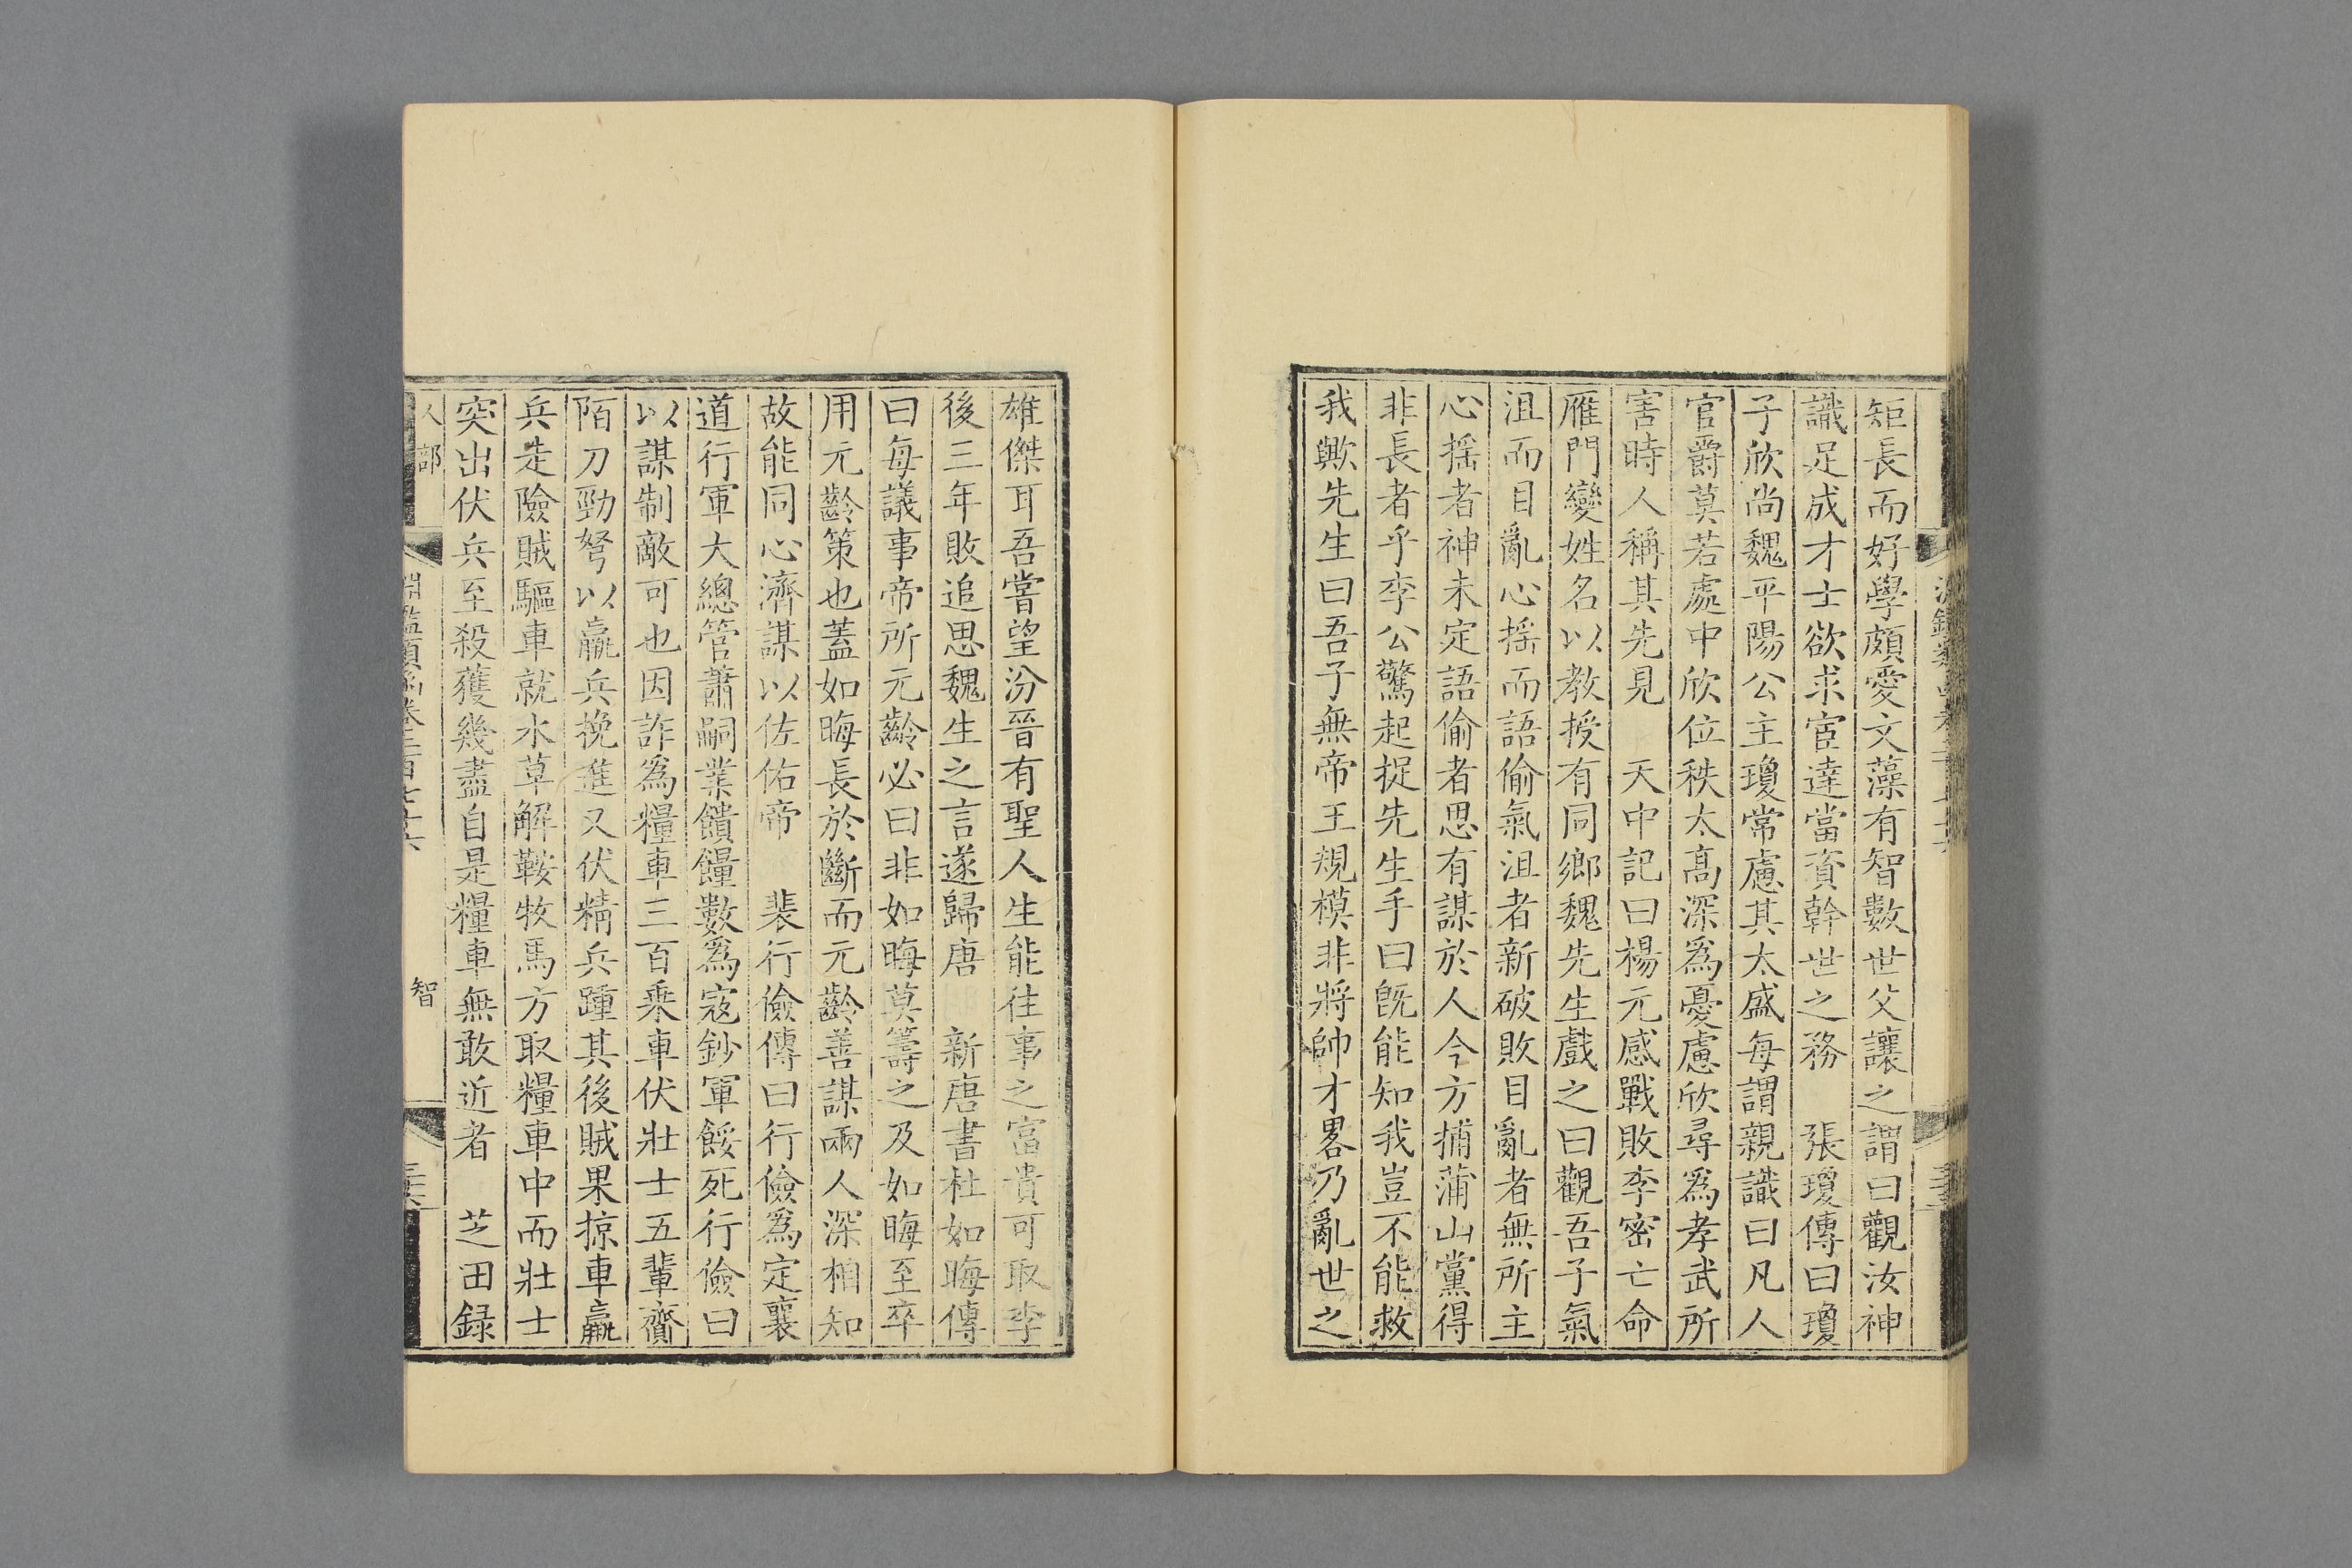 矩長而好學頗愛文藻有智數世父讓之謂曰觀汝神
識足成才士欲求宦達當資幹世之務　張瓊傳曰瓊
子欣尚魏平陽公主瓊常慮其太盛每謂親識曰凡人
官爵莫若處中欣位秩太高深爲憂慮欣尋爲孝武所
害時人稱其先見　天中記曰楊元感戰敗李密亡命
雁門變姓名以教授有同鄉魏先生戲之曰觀吾子氣
沮而目亂心搖而語偷氣沮者新破敗目亂者無所主
心搖者神未定語偷者思有謀於人今方捕蒲山黨得
非長者乎李公驚起捉先生手曰旣能知我豈不能救
我歟先生曰吾子無帝王規模非將帥才畧乃亂世之
雄傑耳吾嘗望汾晉有聖人生能往事之富貴可取李
後三年敗追思魏生之言遂歸唐　新唐書杜如晦傳
曰每議事帝所元齡必曰非如晦莫籌之及如晦至卒
用元齡策也蓋如晦長於斷而元齡善謀兩人深相知
故能同心濟謀以佐佑帝　裴行儉傳曰行儉爲定襄
道行軍大總管蕭嗣業饋糧數爲寇鈔軍餒死行儉曰
以謀制敵可也因詐爲糧車三百乘車伏壯士五輩齎
陌刀勁弩以羸兵挽進又伏精兵踵其後賊果掠車羸
兵走險賊驅車就水草解鞍牧馬方取糧車中而壯士
突出伏兵至殺獲幾盡自是糧車無敢近者　芝田録
人部　淵鑑類函卷二百七十六　智